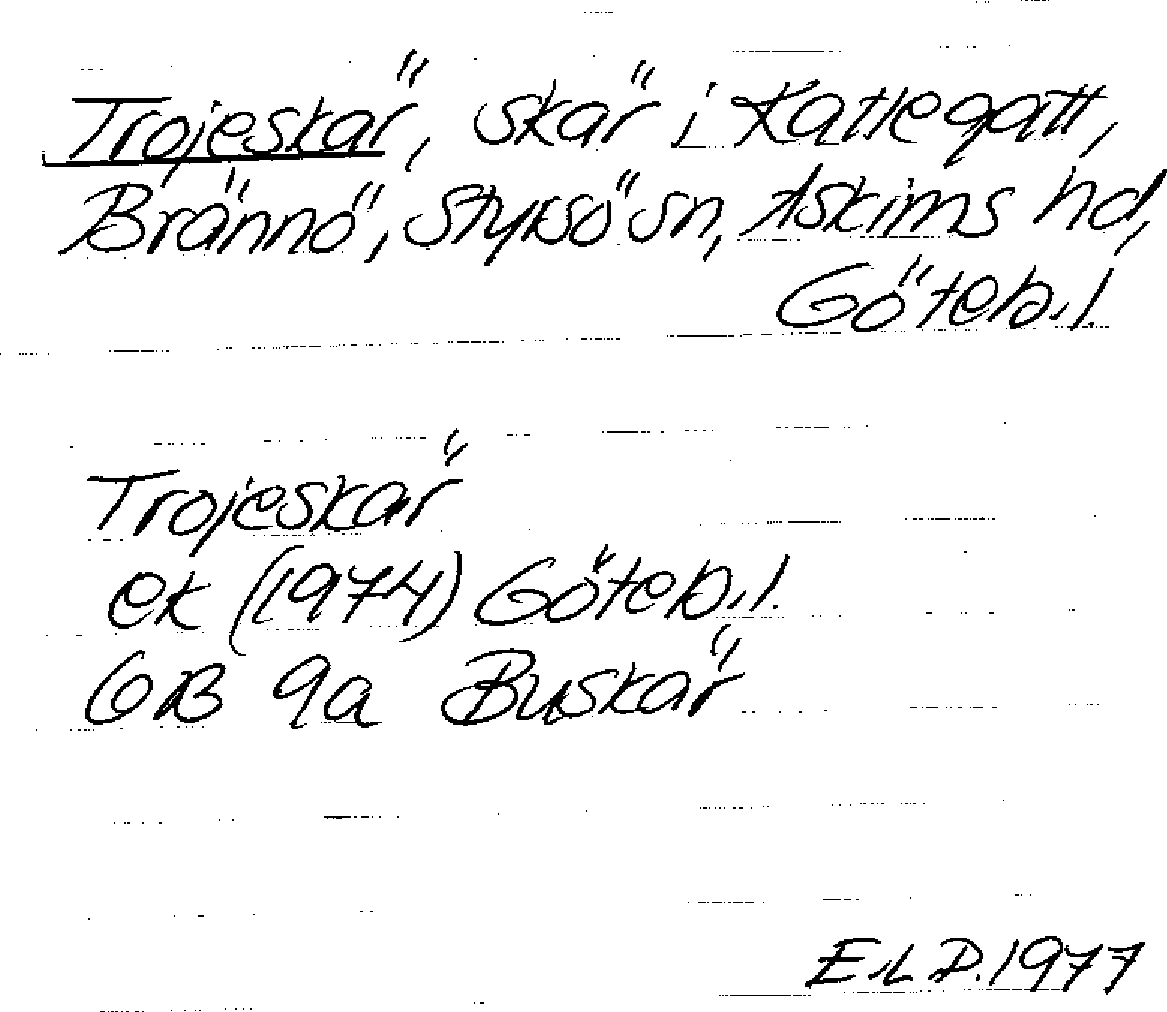 Trojeskär, skär i Kattegatt,
Brännö, Styrsö sn, Askims hd,
Göteb.l.
Trojeskär
ek (1974) Göteb.l.
GB 9a Buskär
E.L D.1977